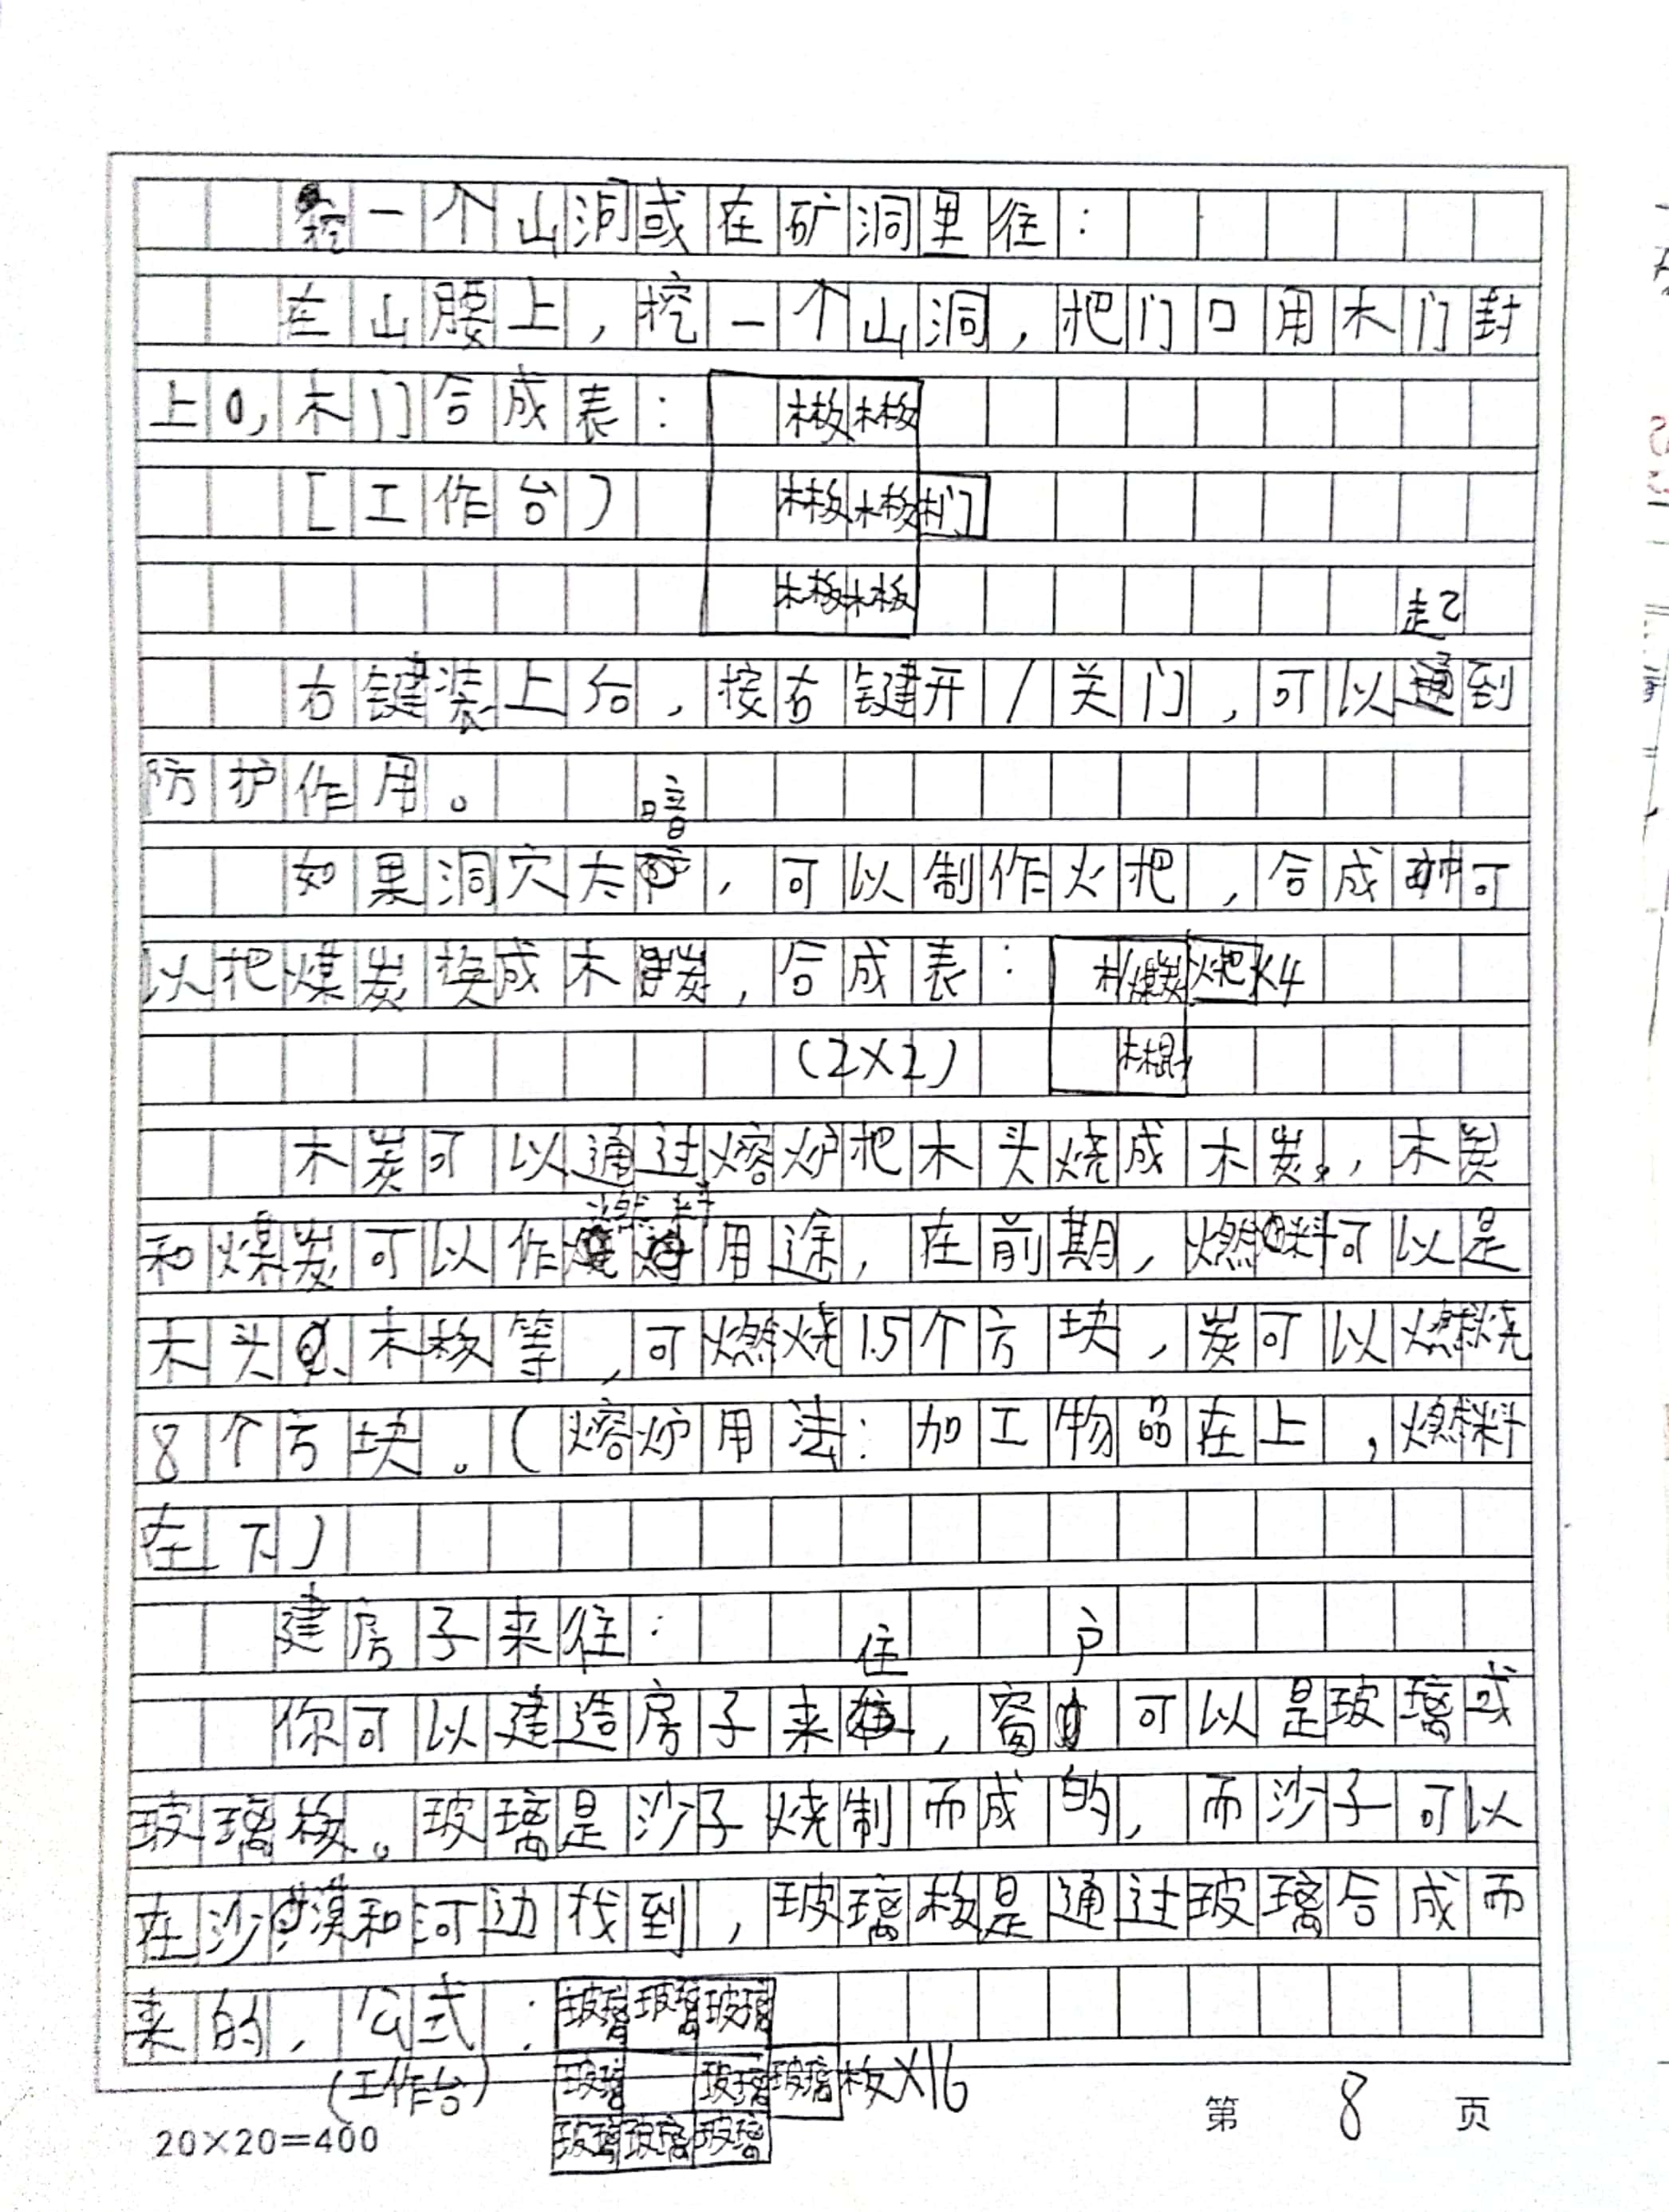 挖一个山洞或在矿洞里住：
在山腰上，挖一个山洞，把门口用木门封
上，木门合成表：木板木板
[工作台）木板木板木门
木板木板
起
右键装上后，按右键开/关门，可以到
防护作用。
暗
如果洞穴太，可以制作火把，合成时可
以把煤炭换成木炭，合成表：煤炭火把×4
(2×2) 木棍
木炭可以通过熔炉把木头烧成木炭，木炭
燃料
和煤炭可以作用途，在前期，燃料可以是
木头、木板等，可燃烧1.5个方块，炭可以燃烧
8个方块。(熔炉用法：加工物品在上，燃料
在下)
建房子来住：
住 户
你可以建造房子来，窗可以是玻璃或
玻璃板。玻璃是沙子烧制而成的，而沙子可以
在沙漠和河边找到，玻璃板是通过玻璃合成而
来的，公式：玻璃玻璃玻璃
(工作台) 玻璃 玻璃玻璃板×16
玻璃玻璃玻璃
20×20=400
第8页